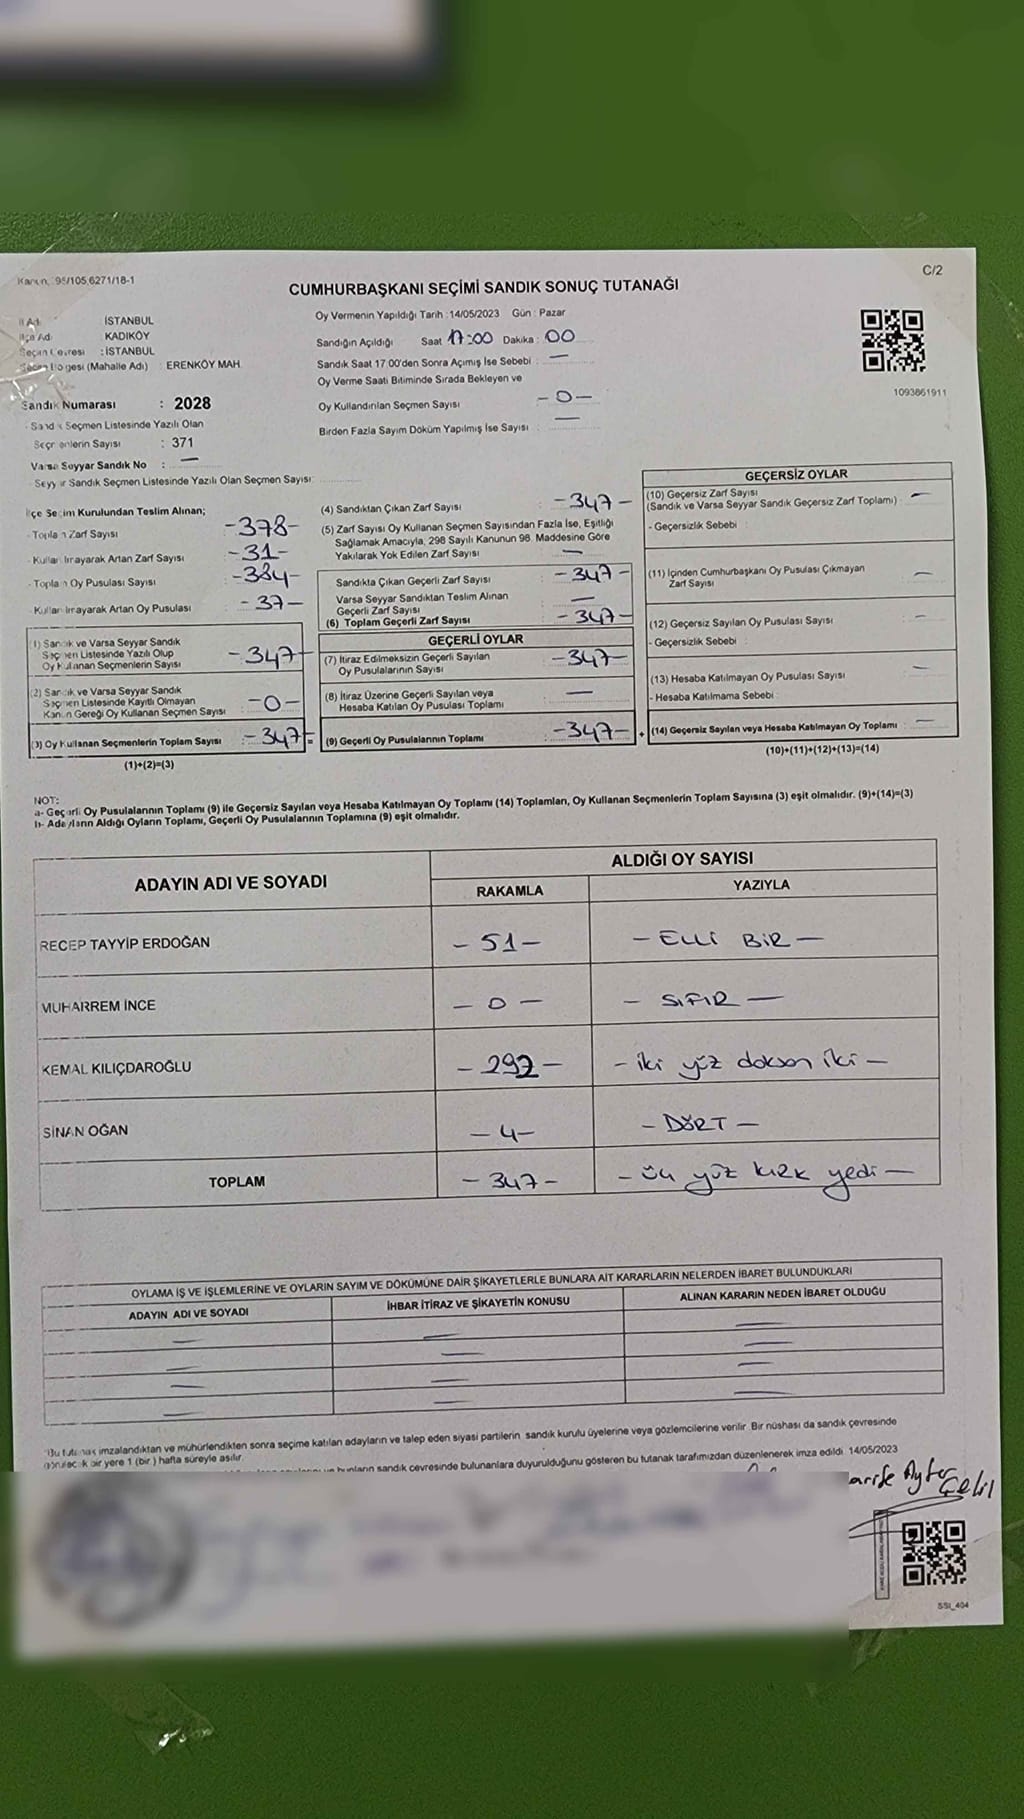 Kanun: 95/105,6271/18-1
C/2
CUMHURBAŞKANI SEÇİMİ SANDIK SONUÇ TUTANAĞI
İl Adı : İSTANBUL
İlçe Adı : KADIKÖY
Seçim Çevresi : İSTANBUL
Seçim Bölgesi (Mahalle Adı) : ERENKÖY MAH.
Sandık Numarası : 2028
- Sandık Seçmen Listesinde Yazılı Olan
Seçmenlerin Sayısı : 371
Varsa Seyyar Sandık No : —
- Seyyar Sandık Seçmen Listesinde Yazılı Olan Seçmen Sayısı:
Oy Vermenin Yapıldığı Tarih :14/05/2023 Gün : Pazar
Sandığın Açıldığı Saat 17:00 Dakika : 00
Sandık Saat 17:00'den Sonra Açımış İse Sebebi : —
Oy Verme Saati Bitiminde Sırada Bekleyen ve
Oy Kullandırılan Seçmen Sayısı : -0-
Birden Fazla Sayım Döküm Yapılmış İse Sayısı : —
1093861911
İlçe Seçim Kurulundan Teslim Alınan;
- Toplam Zarf Sayısı : -378-
- Kullanılmayarak Artan Zarf Sayısı : -31-
- Toplam Oy Pusulası Sayısı : -384-
- Kullanılmayarak Artan Oy Pusulası : -37-
(1) Sandık ve Varsa Seyyar Sandık
Seçmen Listesinde Yazılı Olup
Oy Kullanan Seçmenlerin Sayısı : -347-
(2) Sandık ve Varsa Seyyar Sandık
Seçmen Listesinde Kayıtlı Olmayan
Kanun Gereği Oy Kullanan Seçmen Sayısı : -0-
(3) Oy Kullanan Seçmenlerin Toplam Sayısı : -347- =
(1)+(2)=(3)
(4) Sandıktan Çıkan Zarf Sayısı : -347-
(5) Zarf Sayısı Oy Kullanan Seçmen Sayısından Fazla İse, Eşitliği
Sağlamak Amacıyla, 298 Sayılı Kanunun 98. Maddesine Göre
Yakılarak Yok Edilen Zarf Sayısı : —
Sandıkta Çıkan Geçerli Zarf Sayısı : -347-
Varsa Seyyar Sandıktan Teslim Alınan
Geçerli Zarf Sayısı : —
(6) Toplam Geçerli Zarf Sayısı : -347-
GEÇERLİ OYLAR
(7) İtiraz Edilmeksizin Geçerli Sayılan
Oy Pusulalarının Sayısı : -347-
(8) İtiraz Üzerine Geçerli Sayılan veya
Hesaba Katılan Oy Pusulası Toplamı : —
(9) Geçerli Oy Pusulalarının Toplamı : -347- +
GEÇERSİZ OYLAR
(10) Geçersiz Zarf Sayısı
(Sandık ve Varsa Seyyar Sandık Geçersiz Zarf Toplamı) : —
- Geçersizlik Sebebi :
(11) İçinden Cumhurbaşkanı Oy Pusulası Çıkmayan
Zarf Sayısı : —
(12) Geçersiz Sayılan Oy Pusulası Sayısı : —
- Geçersizlik Sebebi :
(13) Hesaba Katılmayan Oy Pusulası Sayısı : —
- Hesaba Katılmama Sebebi :
(14) Geçersiz Sayılan veya Hesaba Katılmayan Oy Toplamı : —
(10)+(11)+(12)+(13)=(14)
NOT:
a- Geçerli Oy Pusulalarının Toplamı (9) ile Geçersiz Sayılan veya Hesaba Katılmayan Oy Toplamı (14) Toplamları, Oy Kullanan Seçmenlerin Toplam Sayısına (3) eşit olmalıdır. (9)+(14)=(3)
b- Adayların Aldığı Oyların Toplamı, Geçerli Oy Pusulalarının Toplamına (9) eşit olmalıdır.
ADAYIN ADI VE SOYADI ALDIĞI OY SAYISI
RAKAMLA YAZIYLA
RECEP TAYYİP ERDOĞAN -51- - ELLİ BİR -
MUHARREM İNCE -0- - SIFIR -
KEMAL KILIÇDAROĞLU -292- - iki yüz doksan iki -
SİNAN OĞAN -4- - DÖRT -
TOPLAM -347- - üç yüz kırk yedi -
OYLAMA İŞ VE İŞLEMLERİNE VE OYLARIN SAYIM VE DÖKÜMÜNE DAİR ŞİKAYETLERLE BUNLARA AİT KARARLARIN NELERDEN İBARET BULUNDUKLARI
ADAYIN ADI VE SOYADI İHBAR İTİRAZ VE ŞİKAYETİN KONUSU ALINAN KARARIN NEDEN İBARET OLDUĞU
Bu tutanak imzalandıktan ve mühürlendikten sonra seçime katılan adayların ve talep eden siyasi partilerin sandık kurulu üyelerine veya gözlemcilerine verilir. Bir nüshası da sandık çevresinde
görülecek bir yere 1 (bir) hafta süreyle asılır.
bunların sandık çevresinde bulunanlara duyurulduğunu gösteren bu tutanak tarafımızdan düzenlenerek imza edildi. 14/05/2023
SSI_404